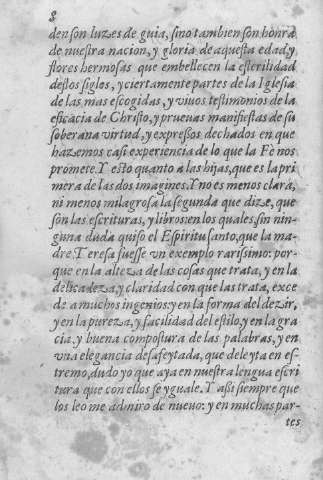 8
den son luzes de guia, sino tambien son honra
de nuestra nacion, y gloria de aquesta edad, y
flores hermosas que embellecen la esterilidad
destos siglos, y ciertamente partes de la Iglesia
de las mas escogidas, y viuos testimonios de la
eficacia de Christo, y pruevas manifiestas de su
soberana virtud, y expressos dechados en que
hazemos casi experiencia de lo que la Fè nos
promete. Y esto quanto a las hijas, que es la pri
mera de las dos imagines. Y no es menos clara,
ni menos milagrosa la segunda que dixe, que
son las escrituras, y libros: en los quales sin nin-
guna duda quiso el Espiritu santo, que la ma-
dre. Teresa fuesse vn exemplo rarissimo: por-
que en la alteza de las cosas que trata, y en la
delicadeza, y claridad con que las trata, exce
de a muchos ingenios: y en la forma del dezir,
y en la pureza, y facilidad del estilo, y en la gra
cia, y buena compostura de las palabras, y en
vna elegancia desafeytada, que deleyta en es-
tremo, dudo yo que aya en nuestra lengua escri
tura que con ellos se yguale. Y assi siempre que
los leo me admiro de nueuo: y en muchas par-
tes